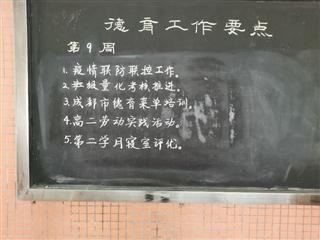 德育工作要点
第9周
1.疫情联防联控工作。
2.班级量化考核推进。
3.成都市德育菜单培训。
4.高二劳动实践活动。
5.第二学月寝室评优。